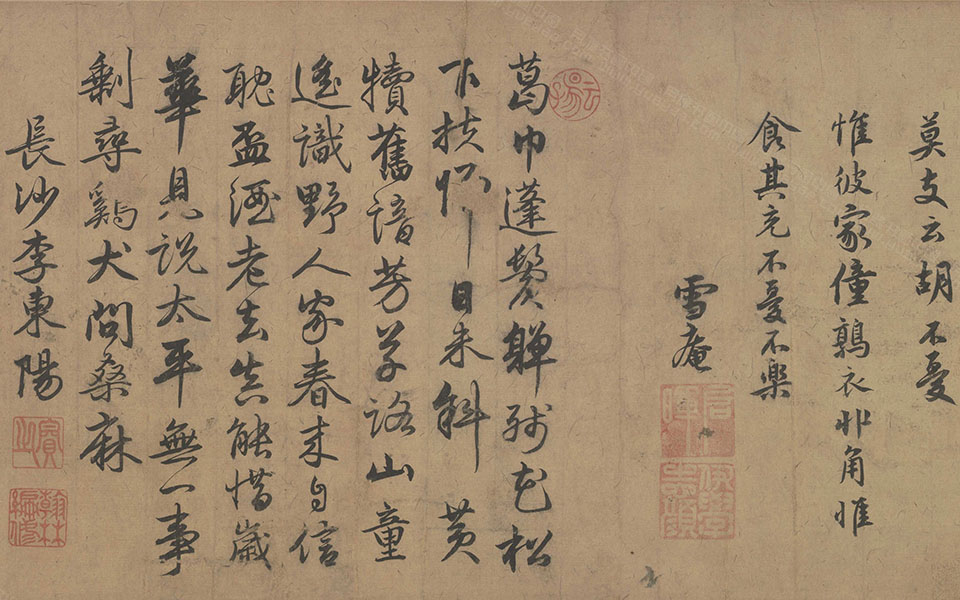 莫支云胡不憂
惟彼家僮鶉衣丱角惟
食其充不憂不樂
雪庵
葛巾蓬鬢軃殘花松
下扶歸日未斜黃
犢舊諳芳草路山童
遙識野人家春來自信
耽盃酒老去真能惜歲
華見說太平無一事
剩尋鷄犬問桑麻
長沙李東陽
賓之
翰林編修